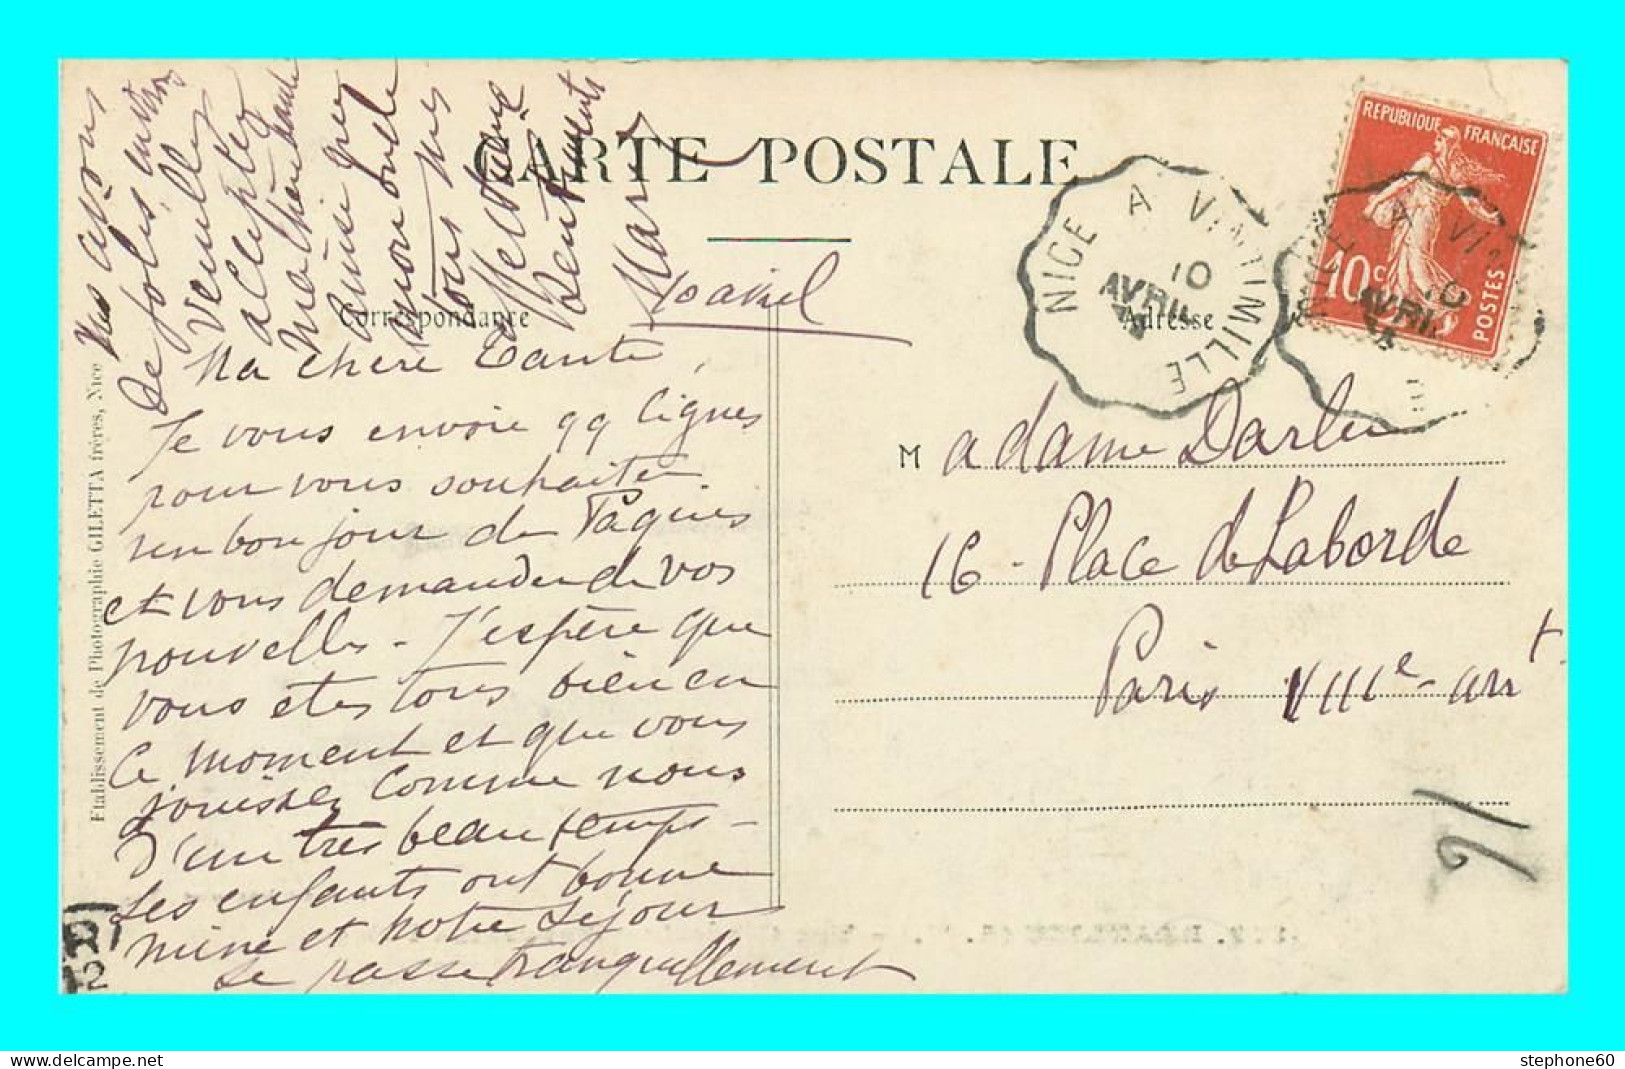 CARTE POSTALE
Correspondance
Adresse
Etablissement de Photographie GILETTA frères, Nice
Ma chère Tante,
Je vous envoie qq lignes
pour vous souhaiter
un bonjour de Pâques
et vous demander de vos
nouvelles - J'espère que
vous êtes tous bien en
ce moment et que vous
jouissez comme nous
d'un très beau temps -
Les enfants ont bonne
mine et notre séjour
se passe tranquillement
Nous avons
de jolis environs
Veuillez
accepter
ma chère tante
ainsi que
mon oncle
tous nos
affectueux
sentiments
Madame Darlu
16 - Place de Laborde
Paris VIIIe - arrt
REPUBLIQUE FRANÇAISE
10c
POSTES
NICE A VINTIMILLE
10
AVRIL
NICE A VI
10
AVRIL
91
stephone60